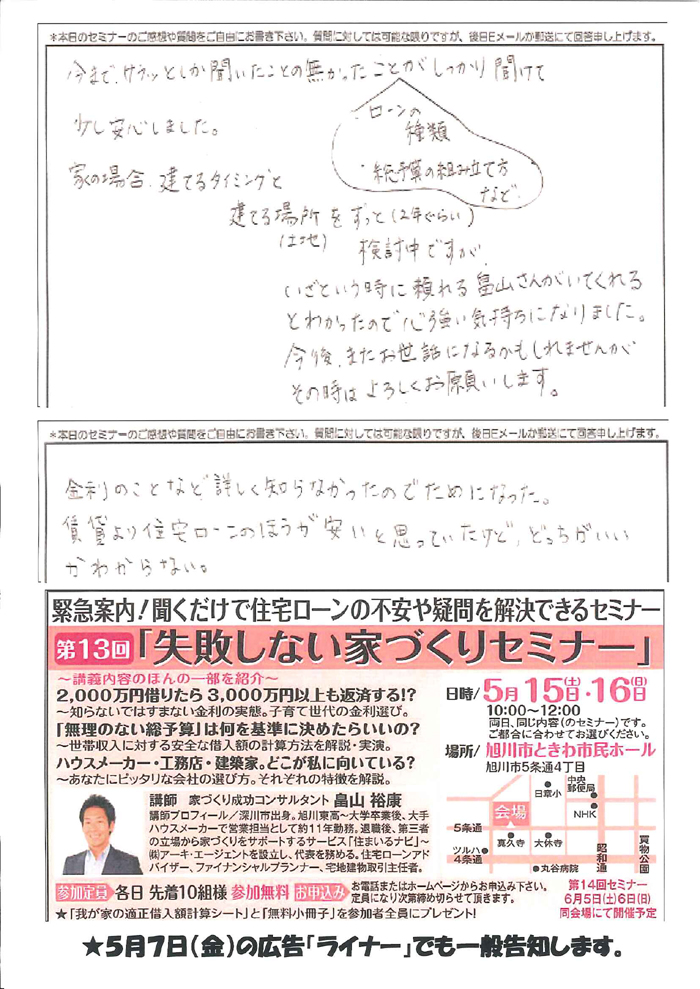 *本日のセミナーのご感想や質問をご自由にお書き下さい。質問に対しては可能な限りですが、後日Eメールか郵送にて回答申し上げます。
今まで、サラッとしか聞いたことの無かったことがしっかり聞けて
少し安心しました。
ローンの
種類
・総予算の組み立て方
など
家の場合、建てるタイミングと
建てる場所をずっと(2年ぐらい)
(土地)
検討中ですが、
いざという時に頼れる畠山さんがいてくれる
とわかったので心強い気持ちになりました。
今後、またお世話になるかもしれませんが
その時はよろしくお願いします。
*本日のセミナーのご感想や質問をご自由にお書き下さい。質問に対しては可能な限りですが、後日Eメールか郵送にて回答申し上げます。
金利のことなど詳しく知らなかったのでためになった。
賃貸より住宅ローンのほうが安いと思っていたけど、どっちがいい
かわからない。
緊急案内!聞くだけで住宅ローンの不安や疑問を解決できるセミナー
第13回「失敗しない家づくりセミナー」
〜講義内容のほんの一部を紹介〜
2,000万円借りたら3,000万円以上も返済する!?
〜知らないではすまない金利の実態。子育て世代の金利選び。
「無理のない総予算」は何を基準に決めたらいいの?
〜世帯収入に対する安全な借入額の計算方法を解説・実演。
ハウスメーカー・工務店・建築家。どこが私に向いている?
〜あなたにピッタリな会社の選び方。それぞれの特徴を解説。
日時/5月15日(土)・16日(日)
10:00〜12:00
両日、同じ内容(のセミナー)です。
ご都合に合わせてお選びください。
場所/旭川市ときわ市民ホール
旭川市5条通4丁目
講師 家づくり成功コンサルタント 畠山 裕康
講師プロフィール/深川市出身。旭川東高〜大学卒業後、大手
ハウスメーカーで営業担当として約11年勤務。退職後、第三者
の立場から家づくりをサポートするサービス「住まいるナビ」〜
㈱アーキ・エージェントを設立し、代表を務める。住宅ローンアド
バイザー、ファイナンシャルプランナー、宅地建物取引主任者。
日章小
中央
郵便局
会場
NHK
5条通
真久寺
大休寺
昭和通
買物公園
ツルハ
4条通
丸谷病院
参加定員 各日 先着10組様 参加無料 お申込み お電話またはホームページからお申込み下さい。
定員になり次第締め切らせて頂きます。
第14回セミナー
6月5日(土)6日(日)
同会場にて開催予定
★「我が家の適正借入額計算シート」と「無料小冊子」を参加者全員にプレゼント!
★5月7日(金)の広告「ライナー」でも一般告知します。